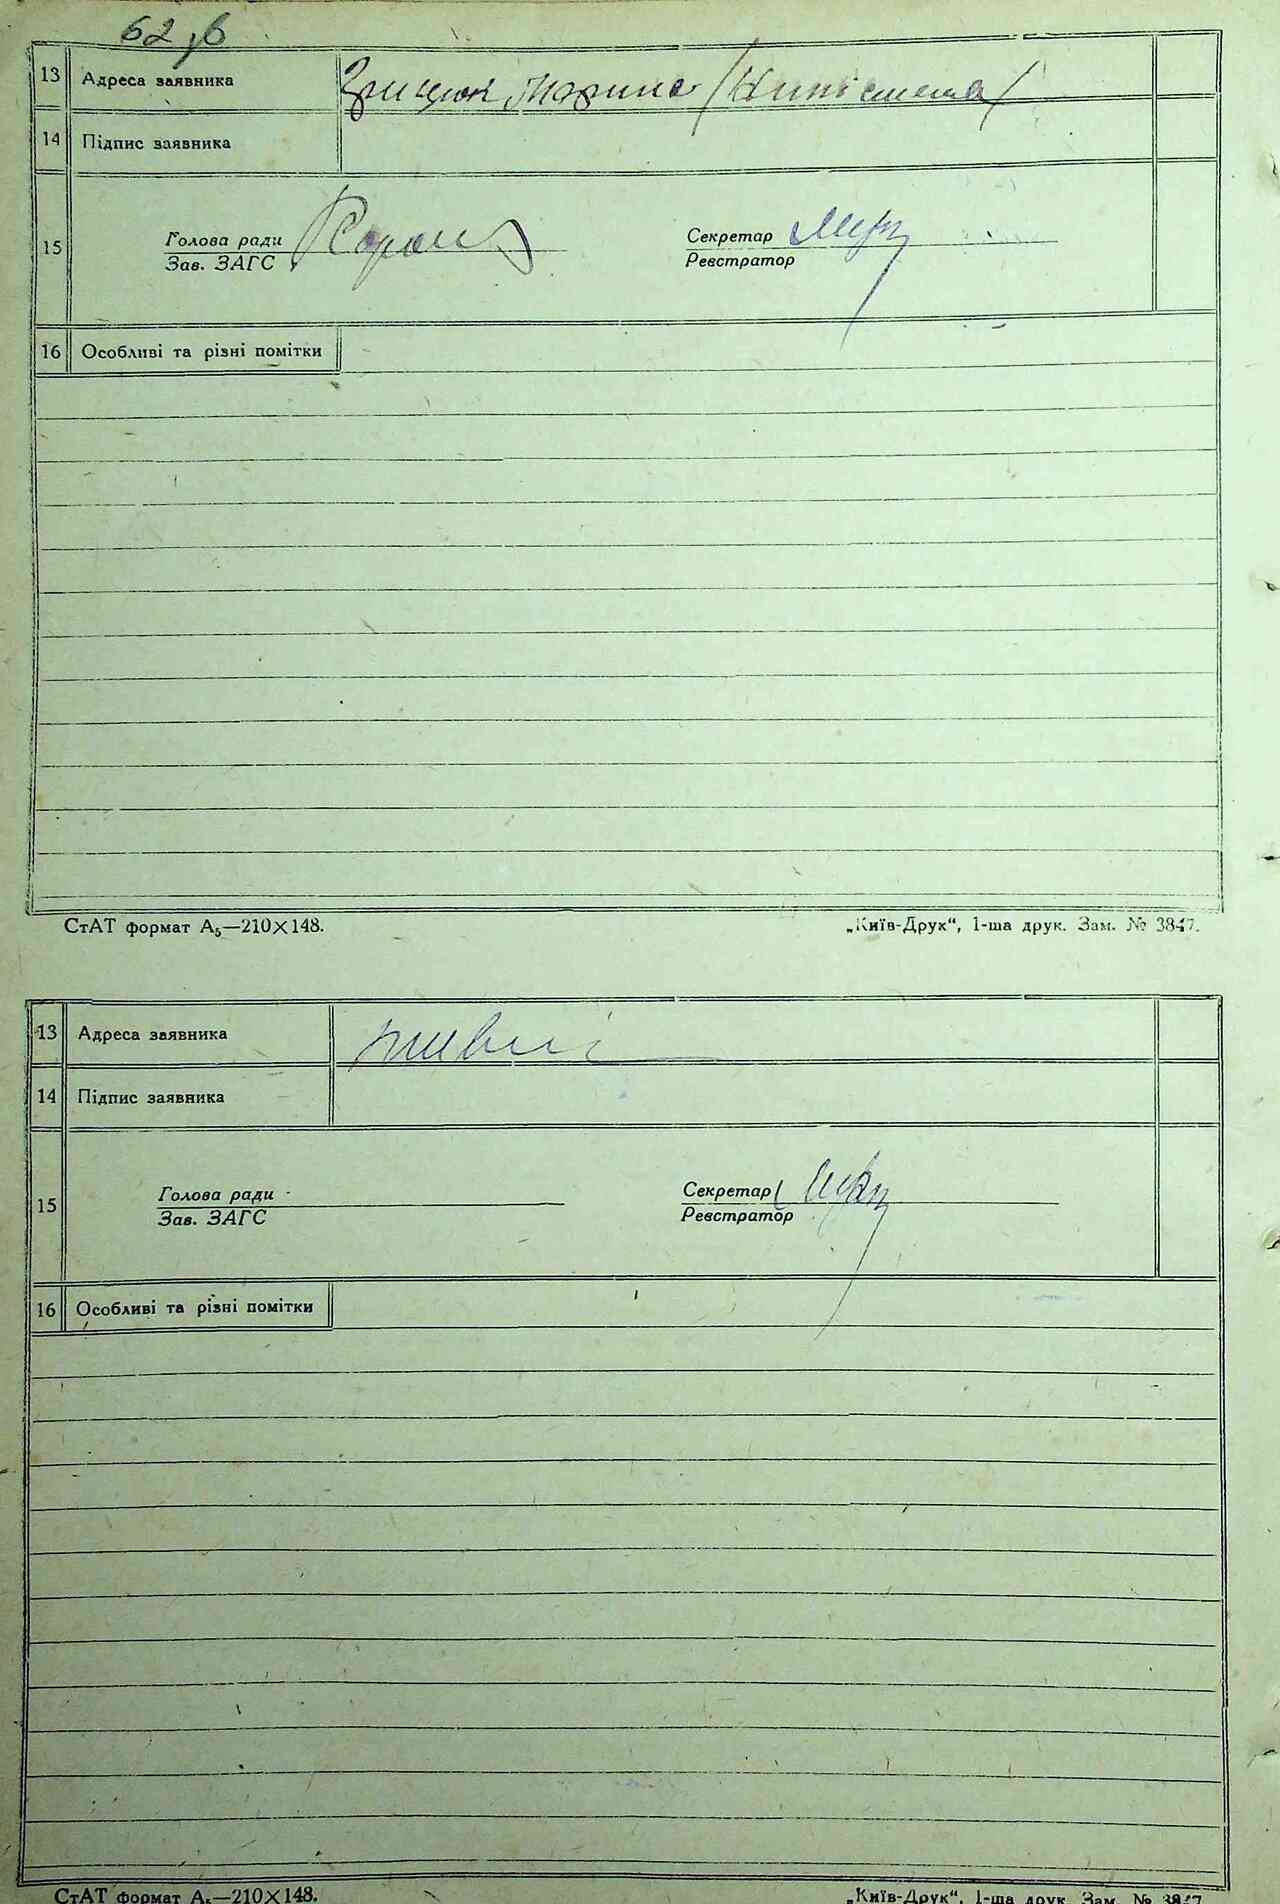 62 зв
13 Адреса заявника Грицюк Марина
14 Підпис заявника
15 Голова ради Секретар
Зав. ЗАГС Реєстратор
16 Особливі та різні помітки
СтАТ формат А₅—210×148. „Київ-Друк“, 1-ша друк. Зам. № 3847.
13 Адреса заявника
14 Підпис заявника
15 Голова ради Секретар
Зав. ЗАГС Реєстратор
16 Особливі та різні помітки
СтАТ формат А₅—210×148. „Київ-Друк“, 1-ша друк. Зам. № 3847